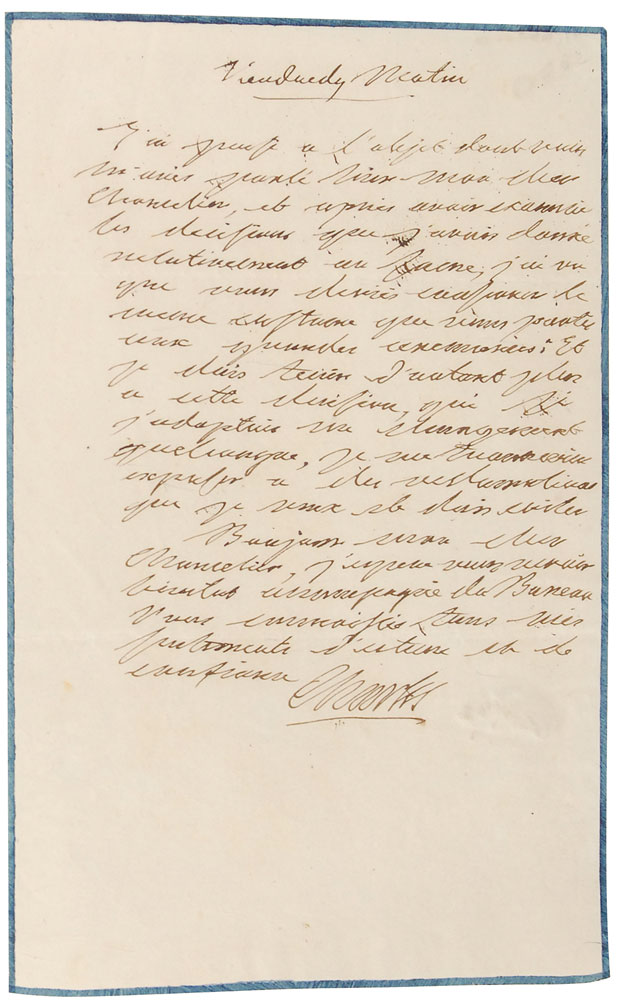 Vendredy Matin
J'ai pensé a l'objet dont vous
m'aviés parlé hier mon cher
Chancelier, et après avoir examiné
les decisions que j'avois donné
relativement au Sacre, j'ai vu
que vous devés conserver le
meme costume que vous portés
aux grandes ceremonies; Et
je dois tenir d'autant plus
a cette decision, que si
j'adoptois un changement
quelconque, je me trouverois
exposé a des reclamations
que je veux et dois eviter
Bonjour mon cher
Chancelier, j'espere vous revoir
bientot accompagné du Bureau
Vous connoissés tous mes
sentiments d'estime et de
confiance
Charles